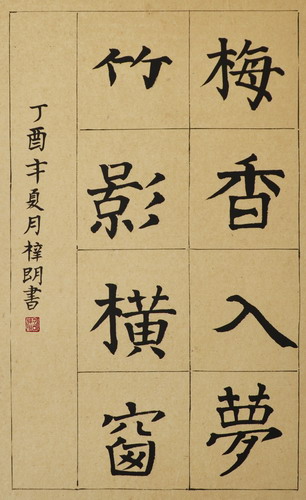 梅香入夢
竹影橫窗
丁酉年夏月梓朗書